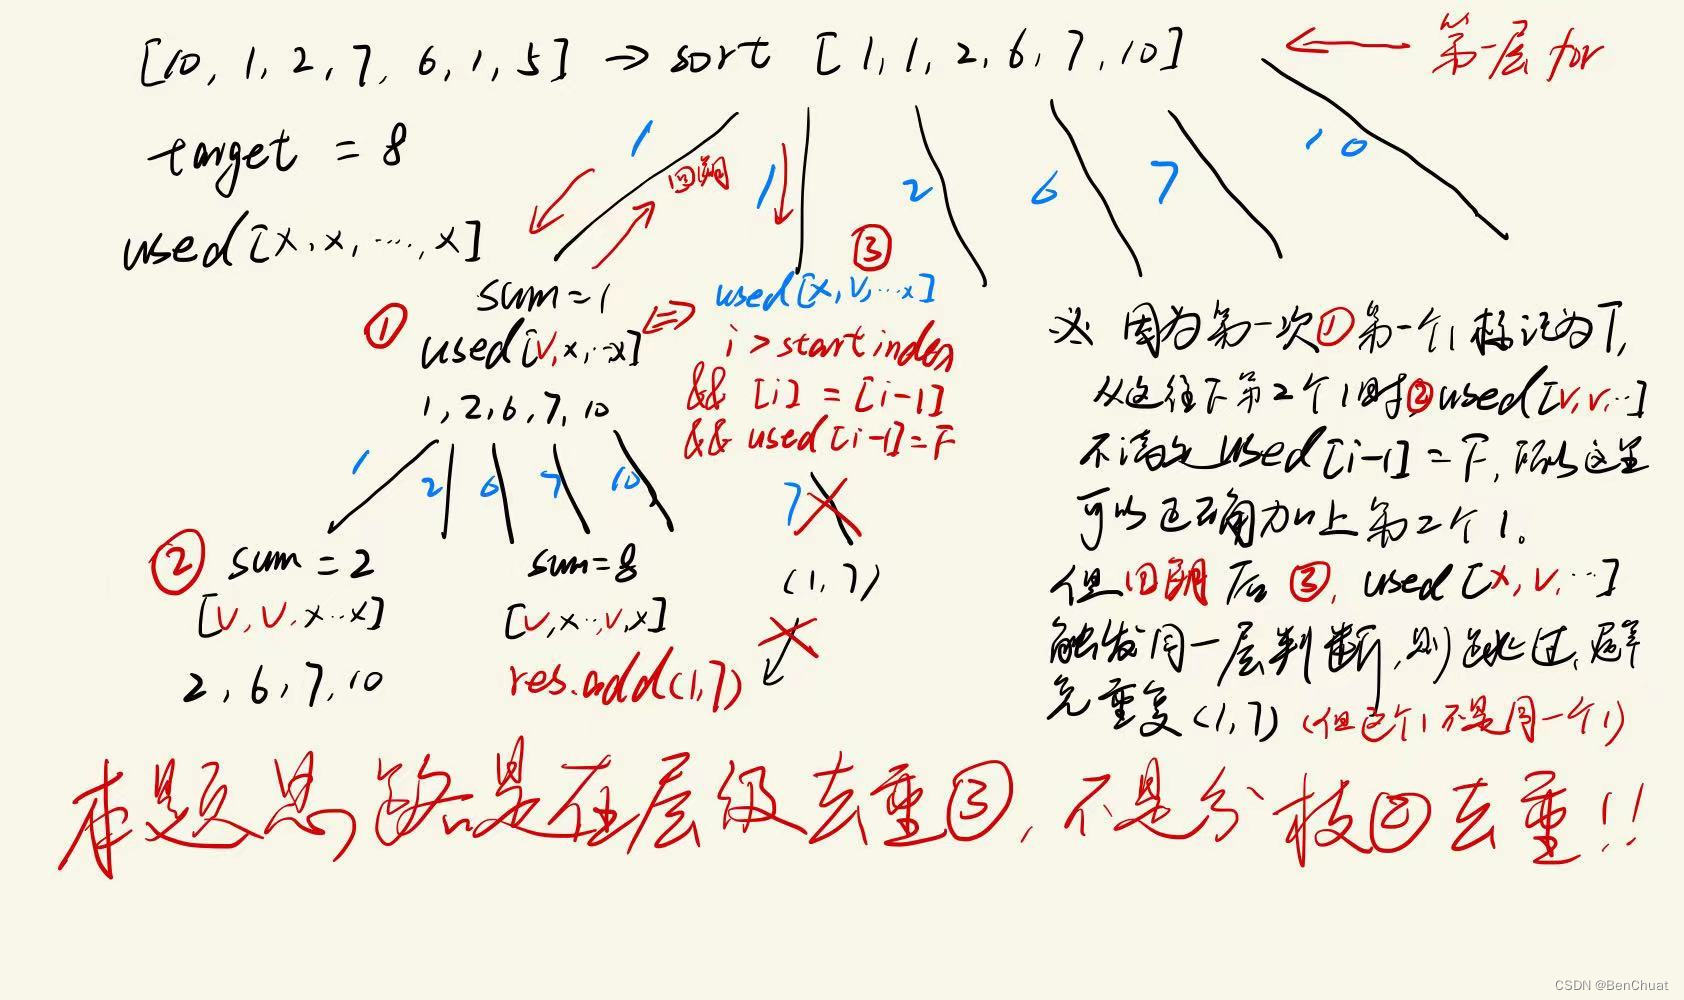 [10, 1, 2, 7, 6, 1, 5] → sort [1, 1, 2, 6, 7, 10] ← 第一层 for
target = 8
used[x, x, ..., x]
1 回溯 1 2 6 7 10
③
sum=1
used[x, v, ...x]
① used[v, x, ..x] ⇔
i > startindex
&& [i] = [i-1]
&& used[i-1]=F
1, 2, 6, 7, 10
1 2 6 7 10
7
② sum=2
[v, v, x...x]
2, 6, 7, 10
sum=8
[v, x..., v, x]
res.add(1,7)
(1, 7)
因为第一次①第一个1标记为T,
从这往下第2个1时②used[v, v, ..]
不满足used[i-1]=F, 所以这里
可以正确加上第2个1。
但回溯后③, used[x, v, ...]
触发同一层判断, 则跳过, 避
免重复(1,7) (但这个1不是同一个1)
本题思路是在层级去重③, 不是分枝②去重!!
CSDN @BenChuat